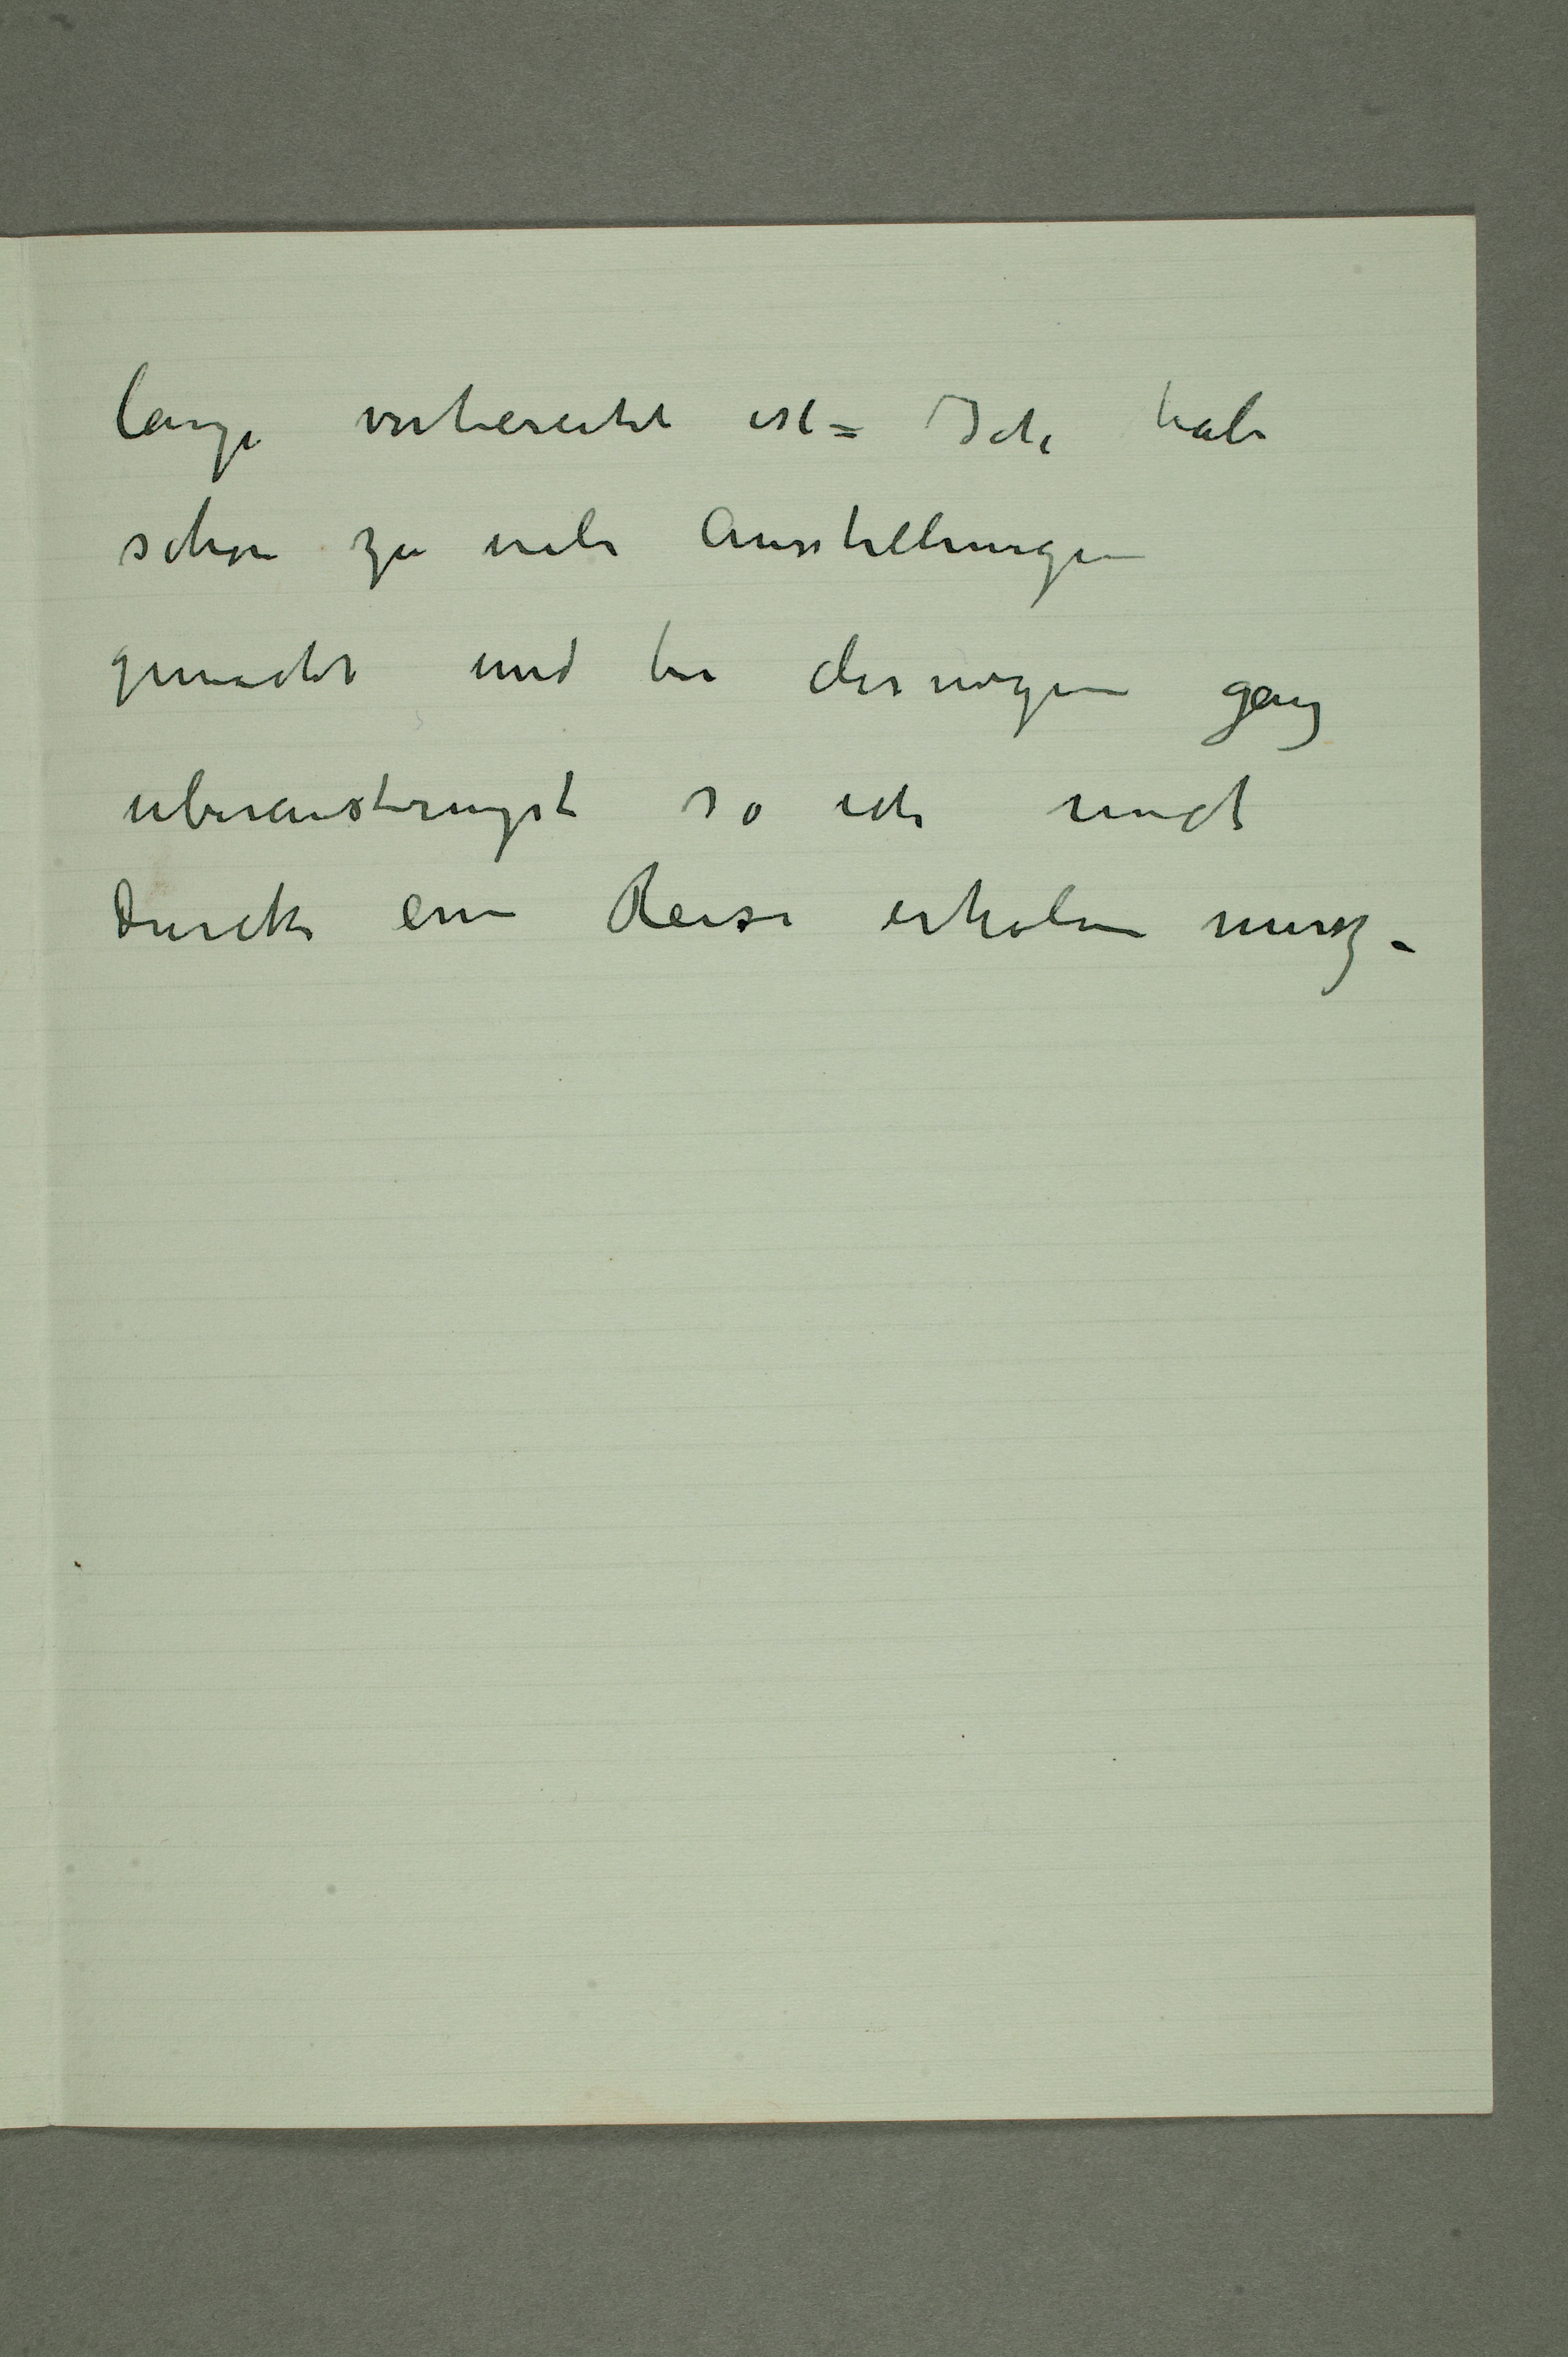 lange vorbereitet ist = Ich habe
schon zu viele Ausstellungen
gemacht und bin deswegen ganz
uberanstrengt so ich mich
durch ein Reise erholen musz –